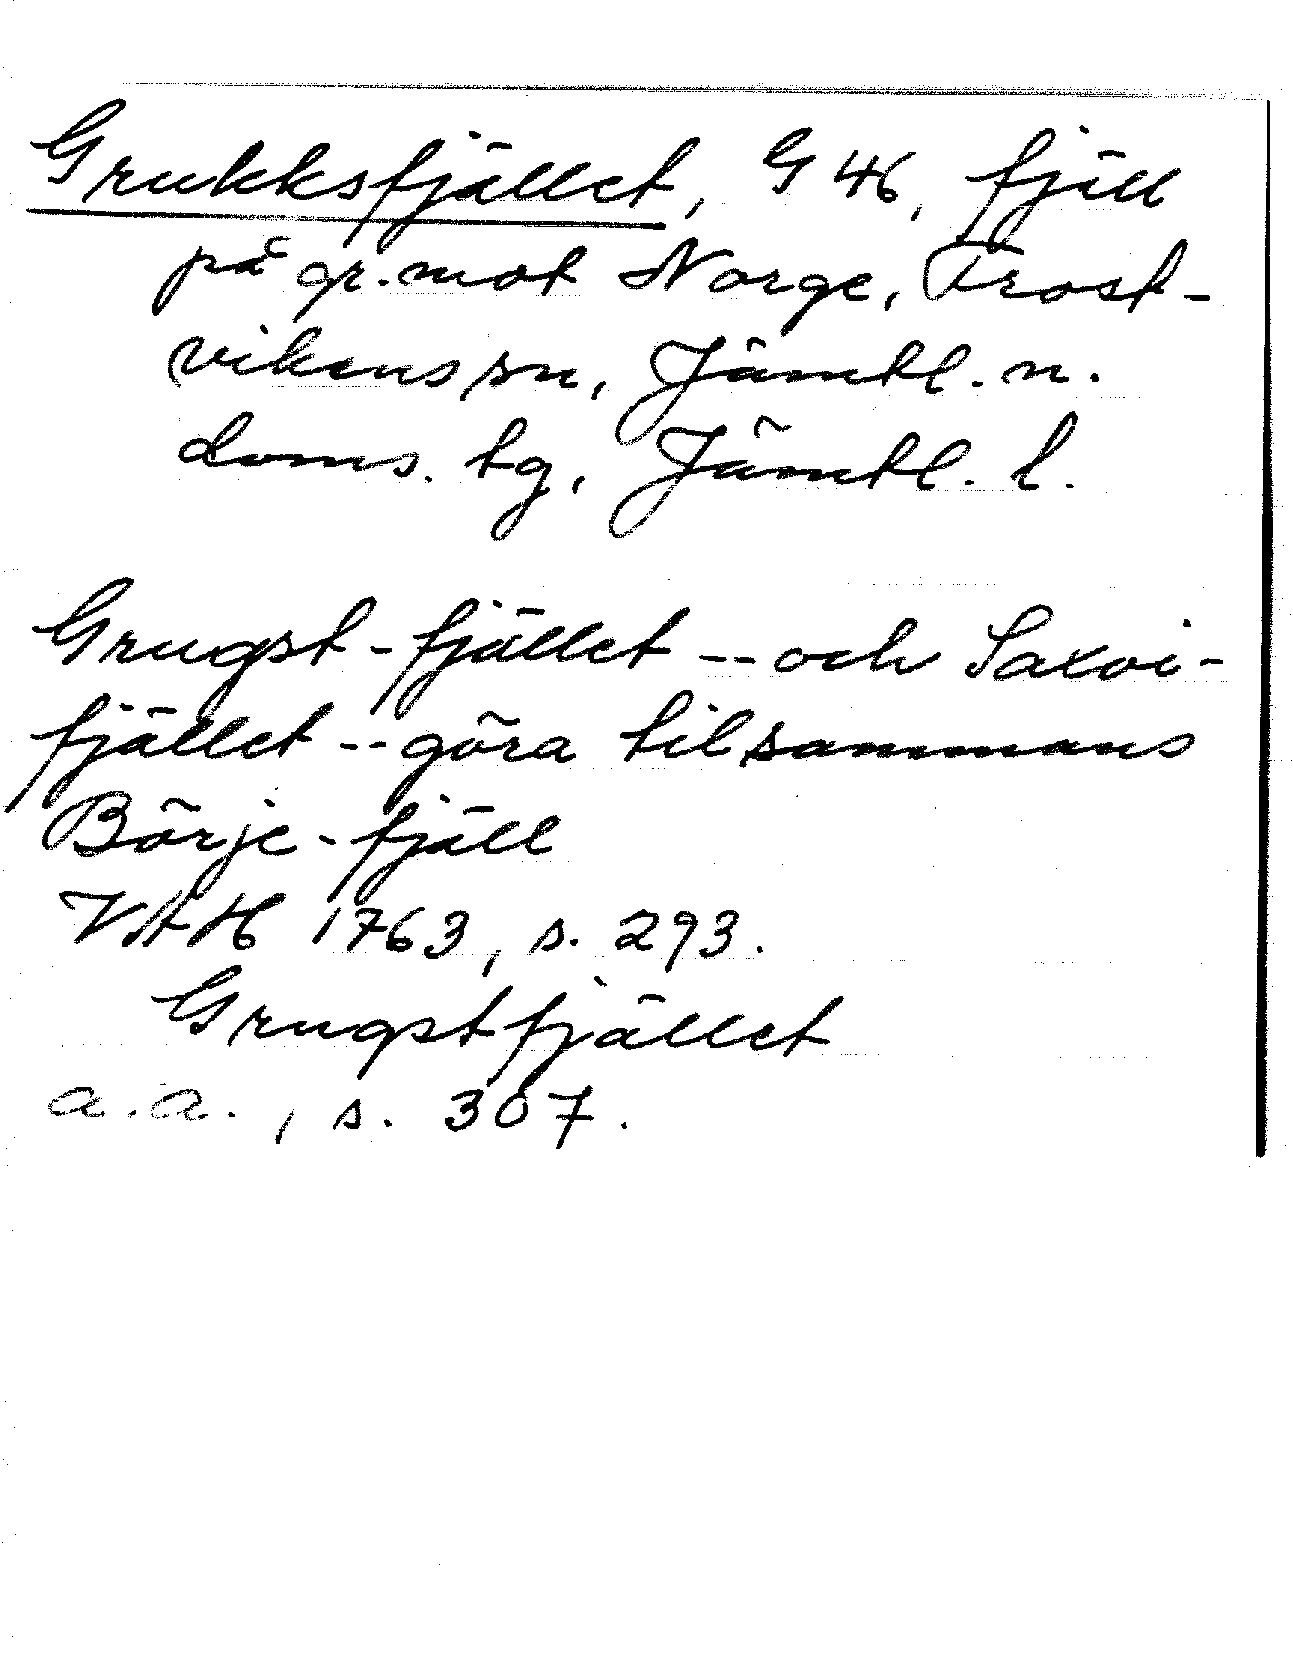 Grukksfjället, G 46, fjäll
på gr. mot Norge, Frost-
vikens sn, Jämtl. n.
doms. tg, Jämtl. l.
Grugst-fjället -- och Saxvi-
fjället -- göra tilsammans
Börje-fjäll
VAH 1763, s. 293.
Grugstfjället
a.a., s. 307.